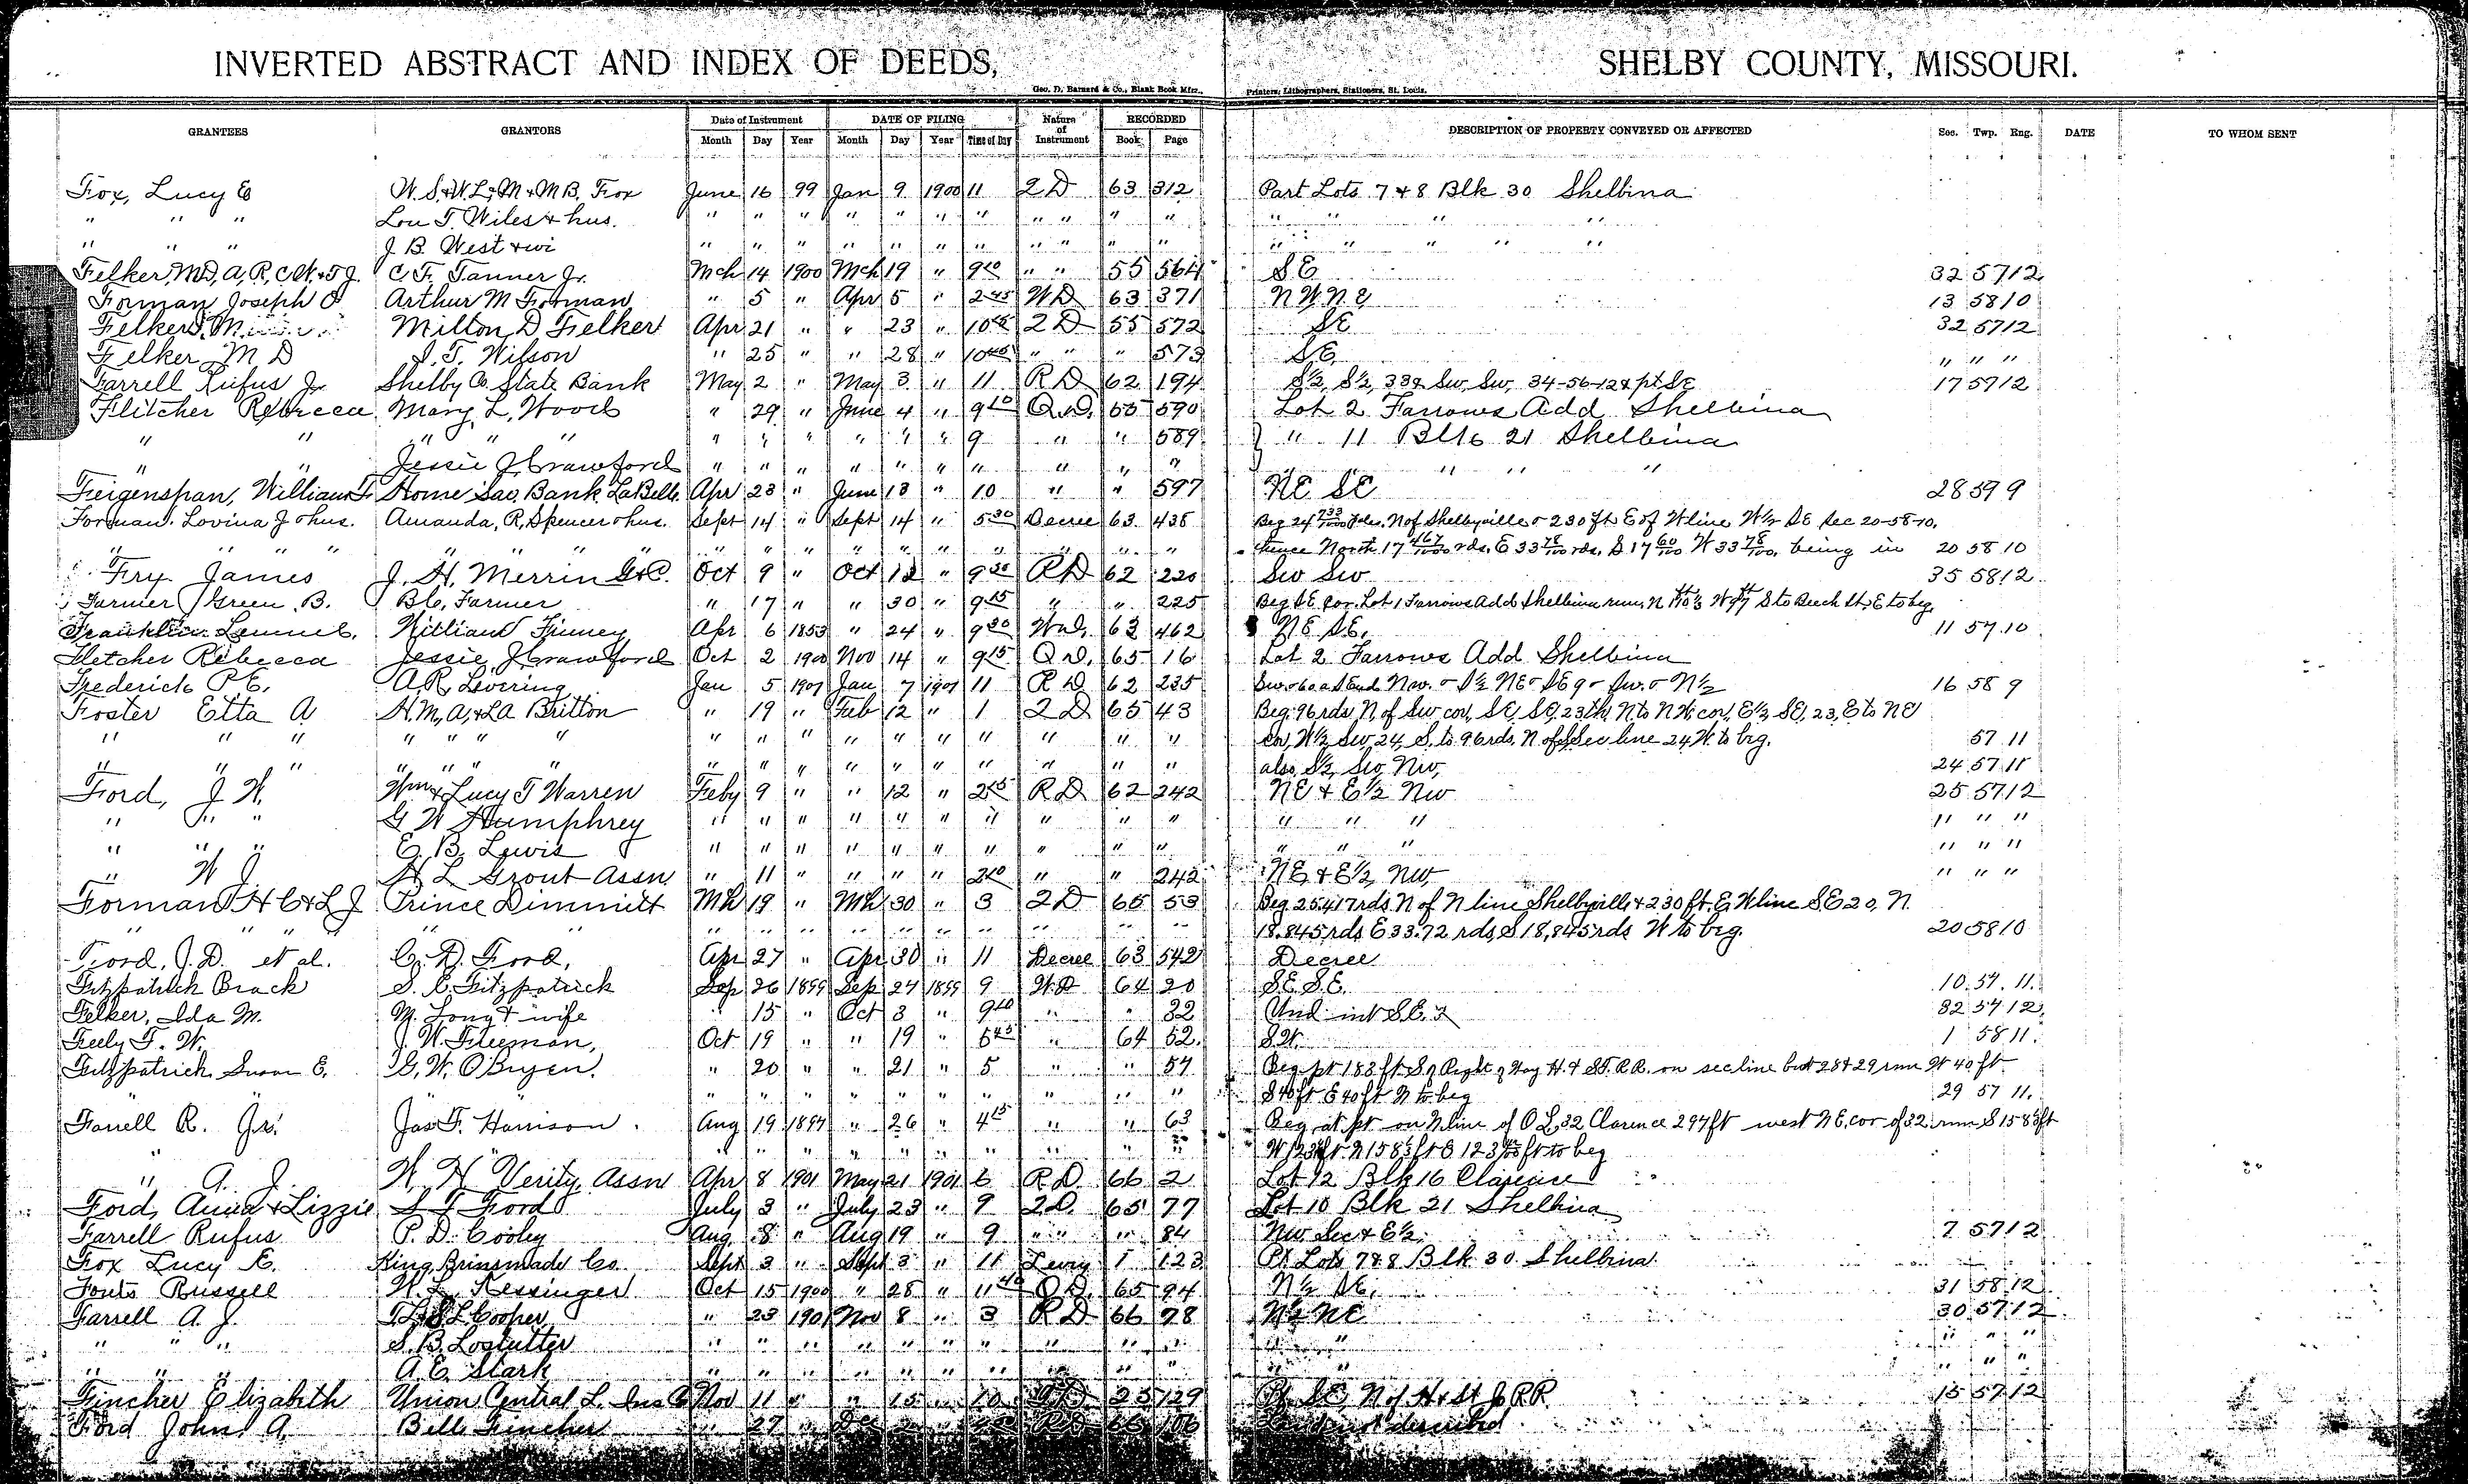 INVERTED ABSTRACT AND INDEX OF DEEDS, SHELBY COUNTY, MISSOURI.
Geo. D. Barnard & Co., Blank Book Mfrs., Printers, Lithographers, Stationers, St. Louis.
GRANTEES GRANTORS Date of Instrument DATE OF FILING Nature of Instrument RECORDED DESCRIPTION OF PROPERTY CONVEYED OR AFFECTED Sec. Twp. Rng. DATE TO WHOM SENT
Month Day Year Month Day Year Time of Day Book Page
Fox, Lucy E W. S. & W. L. M & M B. Fox June 16 99 Jan 9 1900 11 2 D 63 312 Part Lots 7 & 8 Blk 30 Shelbina
" " " Lou T. Wiles & hus. " " " " " " " " " " " " " " "
" " " J B West & wi " " " " " " " " " " " " " " " "
Felker, M D, A, R, C W, & T J. C F. Tanner Jr. Mch 14 1900 Mch 19 " 9 10 " " 55 564 S E 32 57 12
Forman Joseph O Arthur M Forman " 5 " Apr 5 " 2 45 W D 63 371 N W N E 13 58 10
Felker, M. Milton D Felker Apr 21 " " 23 " 10 2 D 55 572 S E 32 57 12
Felker M D J. T. Wilson " 25 " " 28 " 10 45 " " " 573 S E " " "
Farrell Rufus Jr Shelby Co. State Bank May 2 " May 3 " 11 R D 62 194 S½, S½, 33 & Sw, Sw, 34-56-12 & pt SE 17 57 12
Flitcher Rebecca Mary L. Wood " 29 " June 4 " 9 10 Q D. 55 590 Lot 2 Farrows Add Shelbina
" " " " " " " " " " " 9 " " 589 " 11 Blk 21 Shelbina
" " Jessie J. Crawford " " " " " " " " " " " " "
Feigenspan, William F Home Sav. Bank LaBelle. Apr 23 " June 13 " 10 " " 597 NE SE 28 59 9
Forman Lovina J & hus. Amanda, R, Spencer & hus. Sept 14 " Sept 14 " 5 30 Decree 63 435 Beg 24 733/1000 rds. N of Shelbyville & 230 ft E of W line W½ SE Sec 20-58-10,
" " " " " " " " " " " " " " " " thence North 17 467/1000 rds, E 33 78/100 rds, S 17 60/100 W 33 78/100, being in 20 58 10
Fry James J. H. Merrin G & C. Oct 9 " Oct 12 " 9 30 R D 62 220 Sw Sw 35 58 12
Farmer Green B. B C. Farmer " 17 " " 30 " 9 15 " " 225 Beg SE cor. Lot 1 Farrows Add Shelbina run, N W S to Beech St, E to beg.
Franklin Lemuel, William Finney Apr 6 1853 " 24 " 9 30 W D. 63 462 N E S E. 11 57 10
Fletcher Rebecca Jessie J Crawford Oct 2 1900 Nov 14 " 9 15 Q D. 65 16 Lot 2 Farrows Add Shelbina
Frederick P E. A. R. Levering Jan 5 1901 Jan 7 1901 11 R D 62 235 16 58 9
Foster Etta A H. M, A, & L A Britton " 19 " Feb 12 " 1 2 D 65 43 Beg. 96 rds N. of Sw cor, SE, SE, 23 th, N to N W, cor, E½ SE, 23, E to N E
" " " " " " " " " " " " " " " " " cor, W½ Sw, 24, S. to 96 rds, N of Sec line 24 W. to beg. 57 11
" " " " " " " " " " " " " " " " also S½ Sw, Nw, 24 57 11
Ford, J W. Wm & Lucy T Warren Feby 9 " " 12 " 2 15 R D 62 242 NE & E½ Nw 25 57 12
" " " G W Humphrey " " " " " " " " " " " " " " " "
" " " E. B. Lewis " " " " " " " " " " " " " " " "
" W J H L Grout Assn. " 11 " " " " 2 10 " " 242 NE & E½ Nw " " "
Forman H C & L J Prince Dimmitt Mh 19 " Mh 30 " 3 2 D 65 53 Beg 25.417 rds. N of N line Shelbyville & 230 ft. E. W line S. E 20, N.
" " " " " " " " " " " " " " " 18.845 rds E 33.72 rds, S 18,845 rds W to beg. 20 58 10
Ford, J. D. et al. C. D. Ford, Apr 27 " Apr 30 " 11 Decree 63 542 Decree
Fitzpatrick Brack S. E. Fitzpatrick Sep 26 1899 Sep 27 1899 9 W. D 64 20 S. E. S. E. 10. 57. 11.
Felker, Ida M. M. Long & wife 15 " Oct 3 " 9 10 " " 32 Und. int S. E. 32 57 12.
Feely F. W. J. W. Freeman, Oct 19 " " 19 " 5 45 " 64 52. S. W. 1 58 11.
Fitzpatrick Susan E. G. W. OBryen. " 20 " " 21 " 5 " " 57 Beg pt 183 ft S of Right of Way H. & St. R. R. on sec line bet 28 & 29 run W 40 ft
" " " " " " " " " " " " S 40 ft E 40 ft N to beg 29 57 11.
Farrell R. Jr. Jas. F. Harrison. Aug 19 1897 " 26 " 4 15 " " 63 Beg at pt on N line of O L 32 Clarence 297 ft west N E. cor of 32 run S 158 ft
" " " " " " " " " " " " to beg
" A. J. W. H Verity Assn Apr 8 1901 May 21 1901 6 R D. 66 2 Lot 12 Blk 16 Clarence
Ford, Anna & Lizzie S T Ford July 3 " July 23 " 9 2 D. 65 77 Lot 10 Blk 21 Shelbina
Farrell Rufus P. D. Cooley Aug 8 " Aug 19 " 9 " " " 84 Nw Sec & E½ 7 57 12
Fox Lucy E. King Brinsmade Co. Sept 3 " Sept 3 " 11 Levy 1 123 Pt Lots 7 & 8 Blk 30 Shelbina
Fonts Russell W. L. Kessinger Oct 15 1900 " 28 " 11 40 Q D. 65 94 N½ SE, 31 58 12
Farrell A. J. Cooper " 23 1901 Nov 8 " 3 R D 66 78 N½ NE 30 57 12
" " " S. B. Lostutter " " " " " " " " " " " " " "
" " " A. E. Stark " " " " " " " " " " " " " "
Fincher Elizabeth Union Central L. Ins Co Nov 11 " " 15 " 10 25 129 Pt SE, N of H & St Jo RR 15 57 12
Ford John A. Belle Fincher " 27 " Dec R D 66 106 Land not described